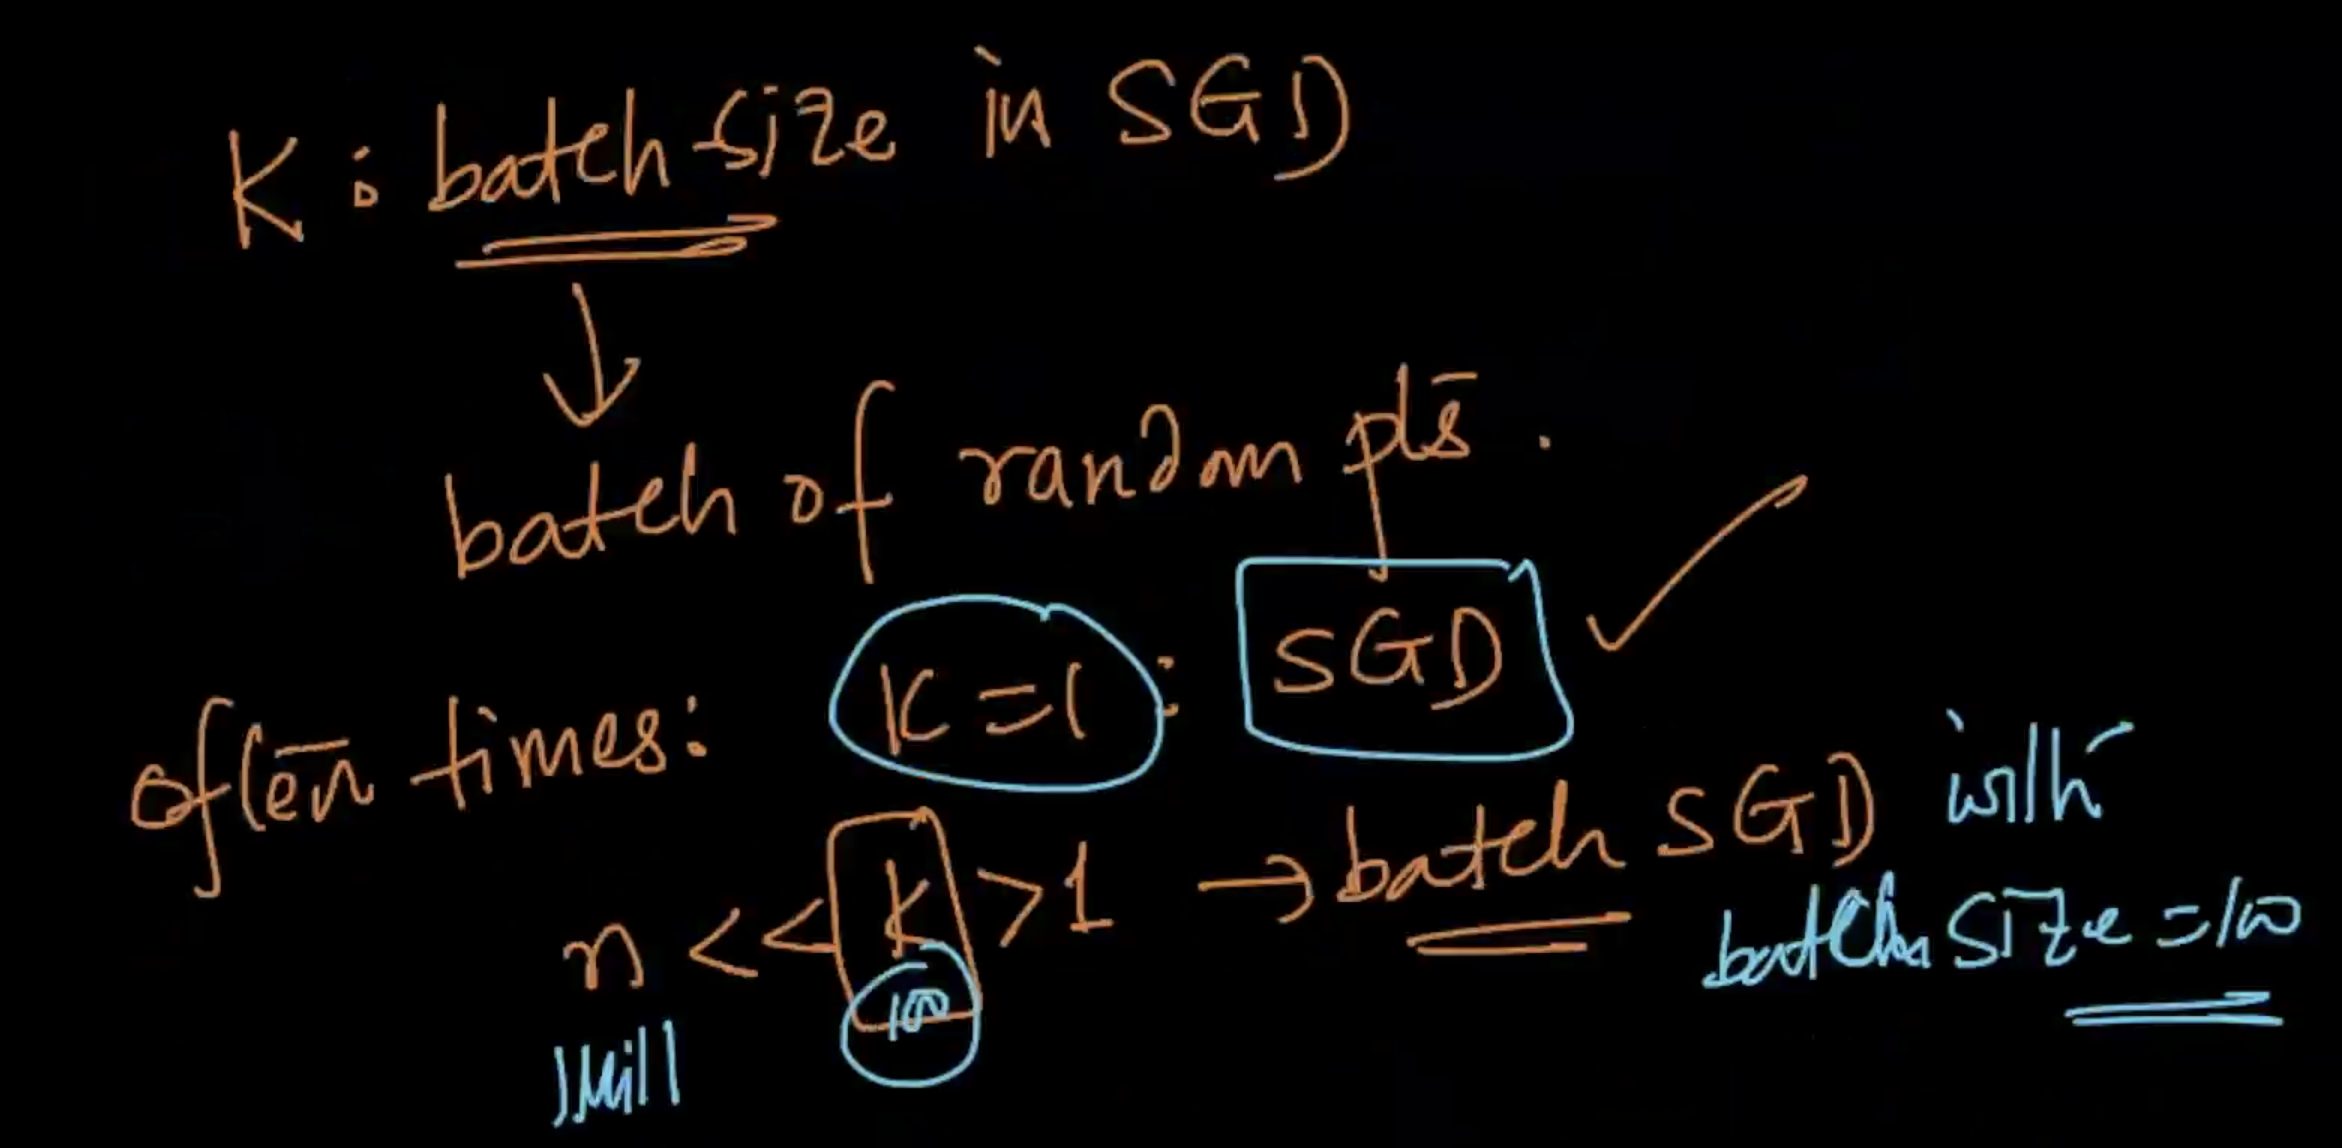 K: batch size in SGD
batch of random pts.
often times: K=1: SGD
n << K > 1 → batch SGD with
batch size = 100
100
1Mill